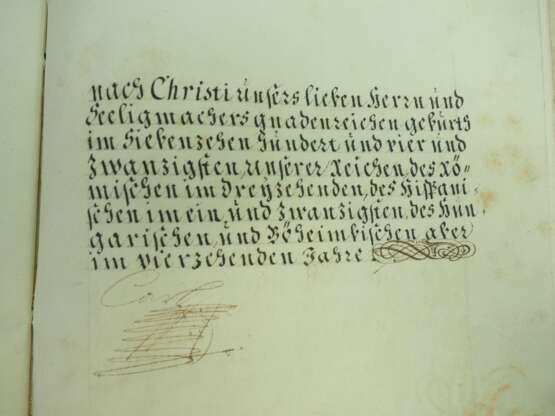 nach Christi unsers lieben Herrn und
Seeligmachers gnadenreichen gebürth
im Siebenzehen hundert und vier und
Zwanzigsten, Unserer Reichen des Rö=
mischen im dreyzehenden, des Hispani=
schen im ein und Zwanzigsten, des Hun
garischen, und Böheimbischen aber
im vierzehenden Jahre
Carl